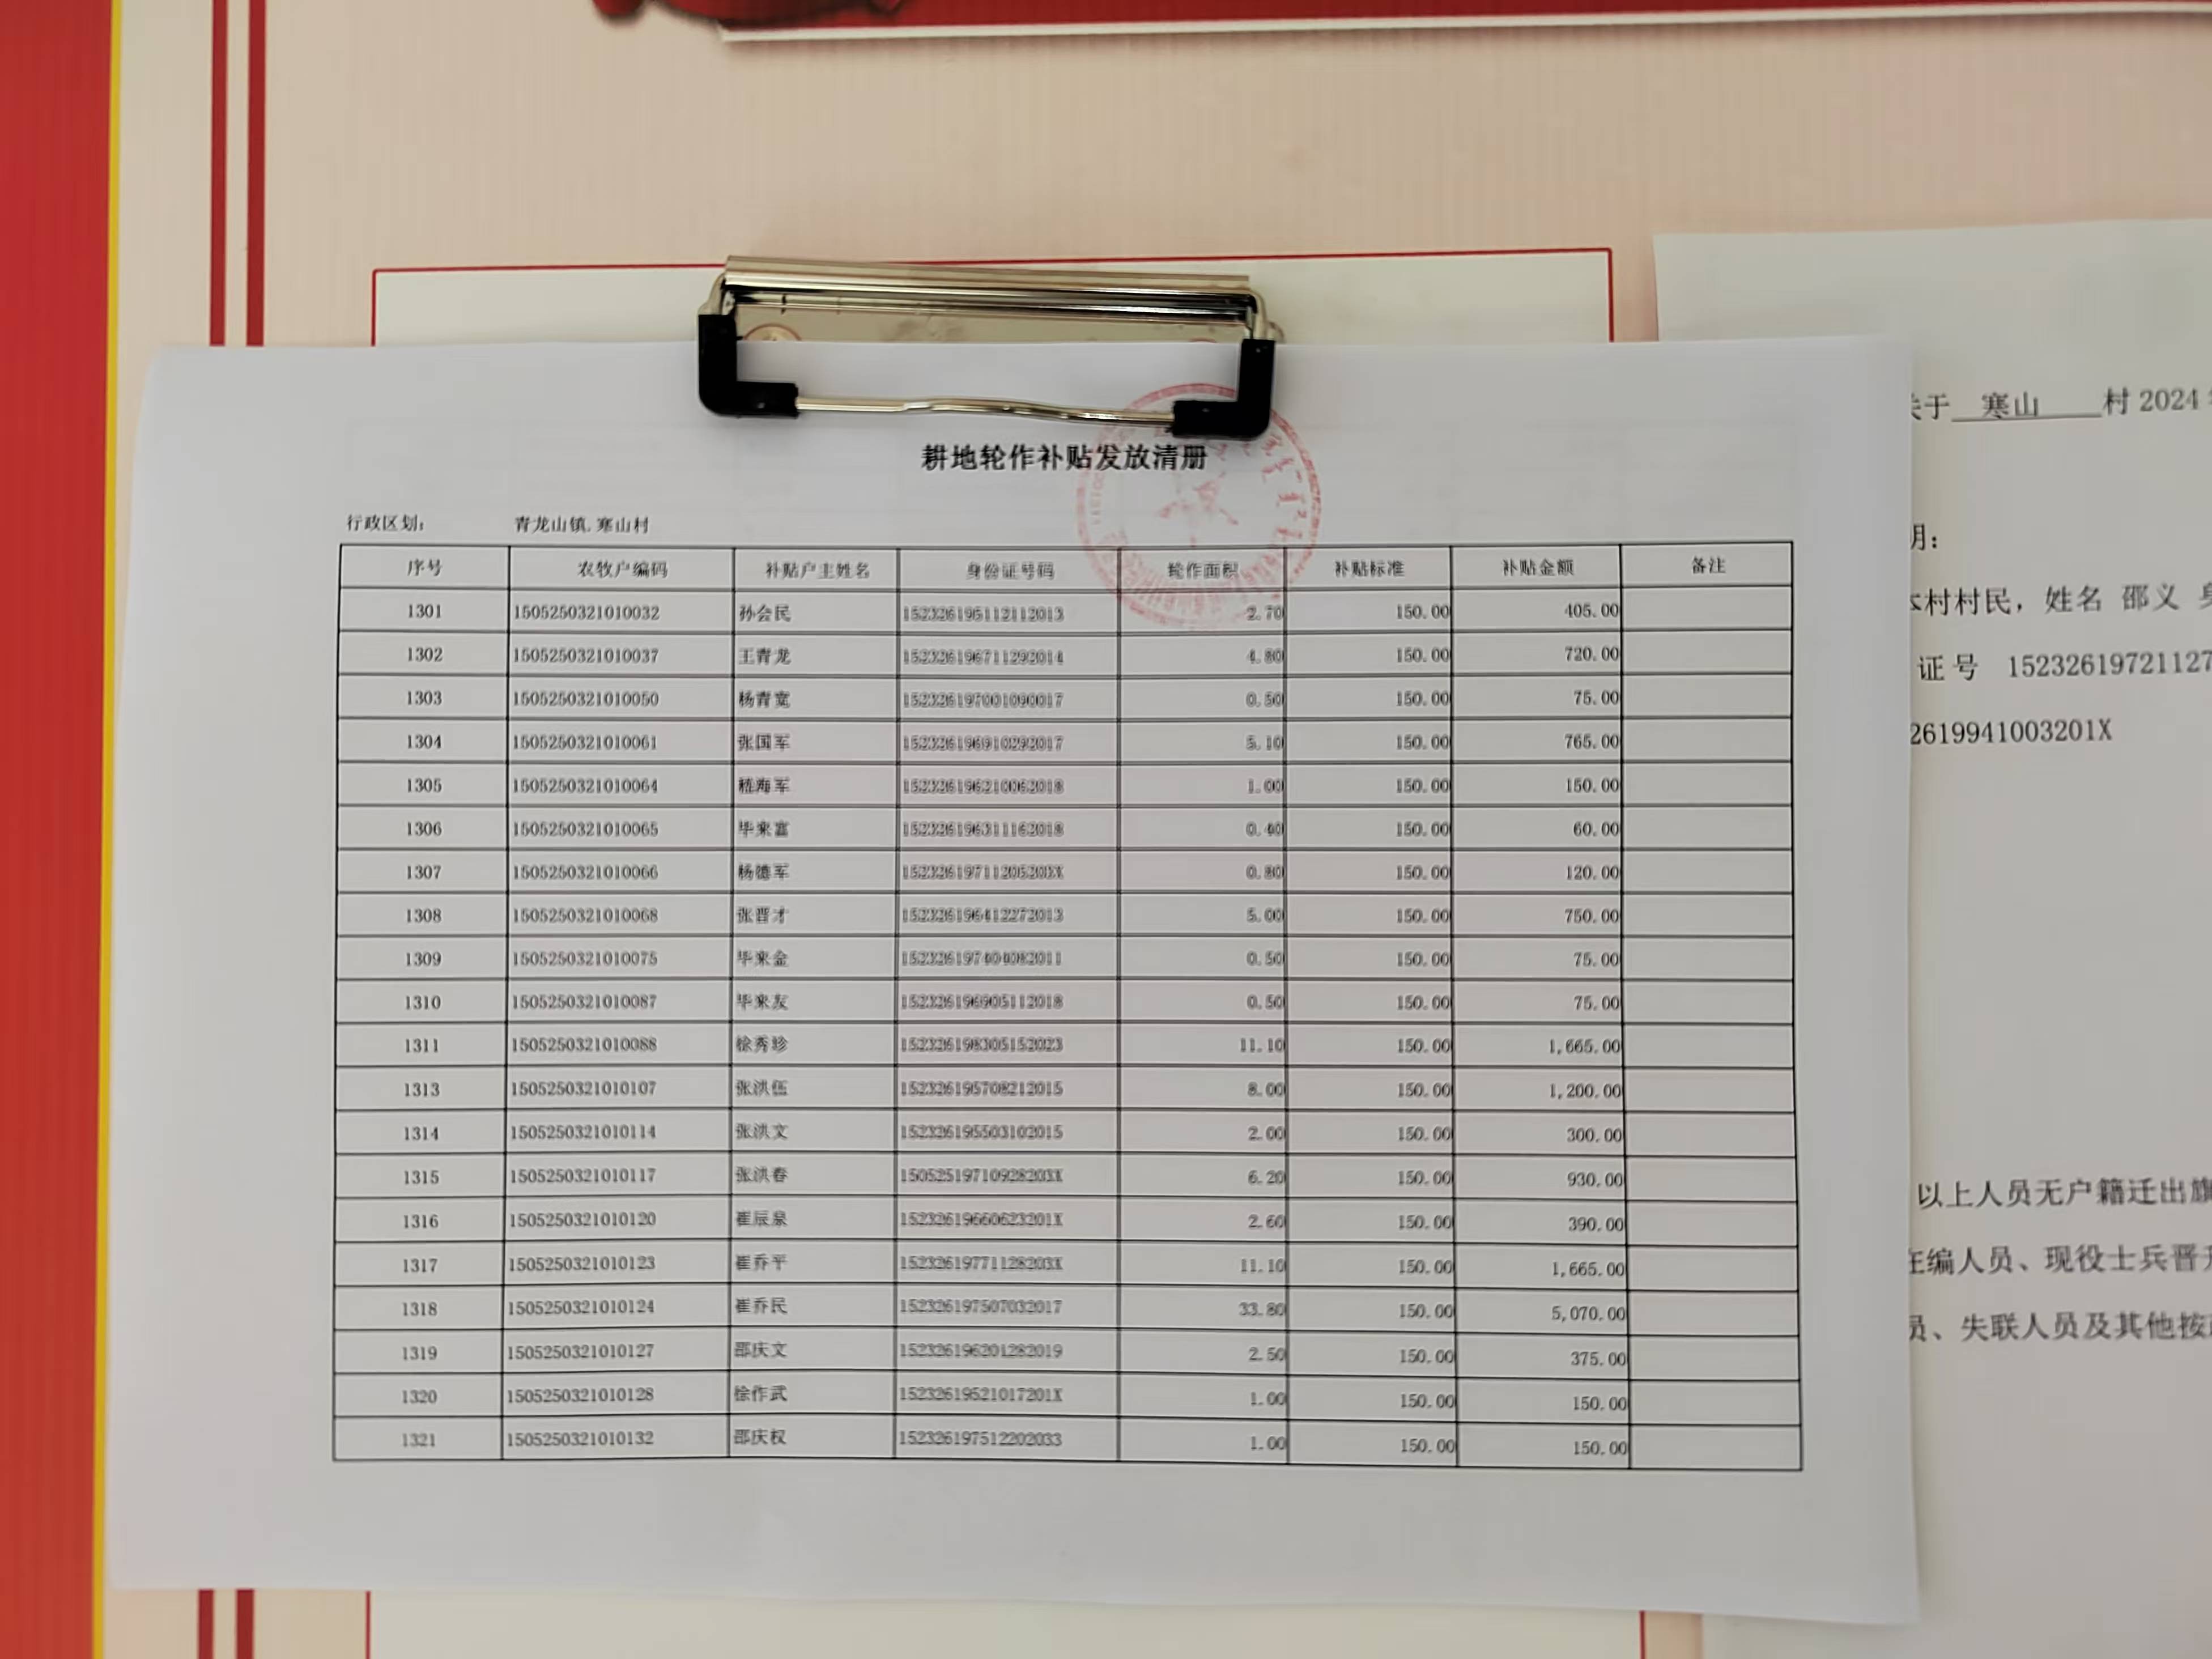 耕地轮作补贴发放清册
行政区划: 青龙山镇.寒山村
序号 农牧户编码 补贴户主姓名 身份证号码 轮作面积 补贴标准 补贴金额 备注
1301 1505250321010032 孙会民 152326195112112013 2.70 150.00 405.00
1302 1505250321010037 王青龙 152326196711292014 4.80 150.00 720.00
1303 1505250321010050 杨青宽 152326197001090017 0.50 150.00 75.00
1304 1505250321010061 张国军 152326196910292017 5.10 150.00 765.00
1305 1505250321010064 嵇海军 152326196210062018 1.00 150.00 150.00
1306 1505250321010065 毕来富 152326196311162018 0.40 150.00 60.00
1307 1505250321010066 杨德军 15232619711205203X 0.80 150.00 120.00
1308 1505250321010068 张晋才 152326196412272013 5.00 150.00 750.00
1309 1505250321010075 毕来金 152326197404082011 0.50 150.00 75.00
1310 1505250321010087 毕来友 152326196905112018 0.50 150.00 75.00
1311 1505250321010088 徐秀珍 152326198305152023 11.10 150.00 1,665.00
1313 1505250321010107 张洪伍 152326195708212015 8.00 150.00 1,200.00
1314 1505250321010114 张洪文 152326195503102015 2.00 150.00 300.00
1315 1505250321010117 张洪春 15052519710928203X 6.20 150.00 930.00
1316 1505250321010120 崔辰泉 15232619660623201X 2.60 150.00 390.00
1317 1505250321010123 崔乔平 15232619771128203X 11.10 150.00 1,665.00
1318 1505250321010124 崔乔民 152326197507032017 33.80 150.00 5,070.00
1319 1505250321010127 邵庆文 152326196201282019 2.50 150.00 375.00
1320 1505250321010128 徐作武 15232619521017201X 1.00 150.00 150.00
1321 1505250321010132 邵庆权 152326197512202033 1.00 150.00 150.00
关于 寒山 村 2024
明:
本村村民，姓名 邵义
证号 15232619721127
2619941003201X
以上人员无户籍迁出旗
在编人员、现役士兵晋升
员、失联人员及其他按